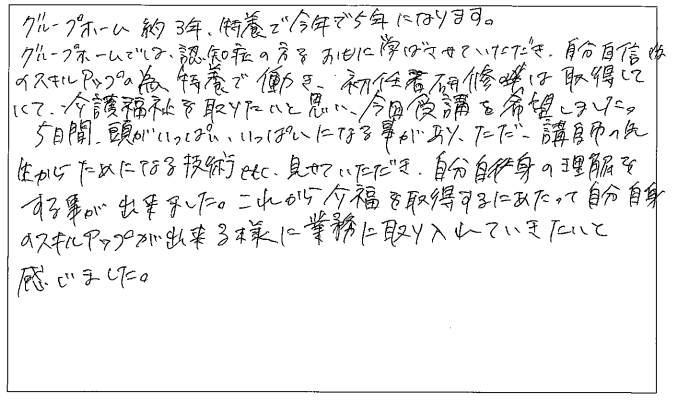 グループホーム 約3年、特養で今年で5年になります。
グループホームでは、認知症の方をおもに学ばさせていただき、自分自信
のスキルアップの為 特養で働き、初任者研修は取得して
いて、介護福祉を取りたいと思い、今回受講を希望しました。
5日間、頭がいっぱい、いっぱいになる事があり、ただ、講師の先
生からためになる技術etc、見せていただき、自分自身の理解を
する事が出来ました。これから介福を取得するにあたって自分自身
のスキルアップが出来る様に業務に取り入れていきたいと
感じました。